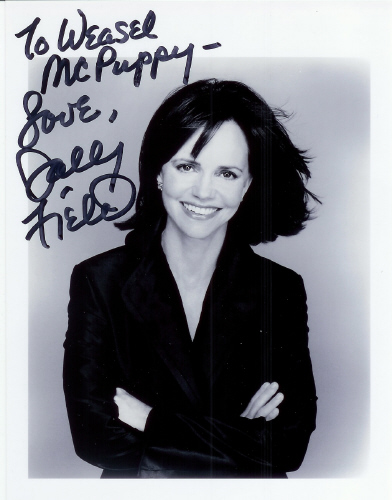 To Weasel
McPuppy-
Love,
Sally
Field